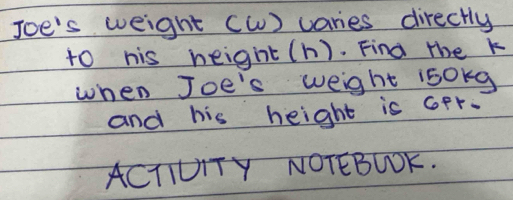 Joe's weight (w) varies directly
to his height (h). Find the k
when Joe's weight 150kg
and his height is 6ft.
ACTIVITY NOTEBOOK.